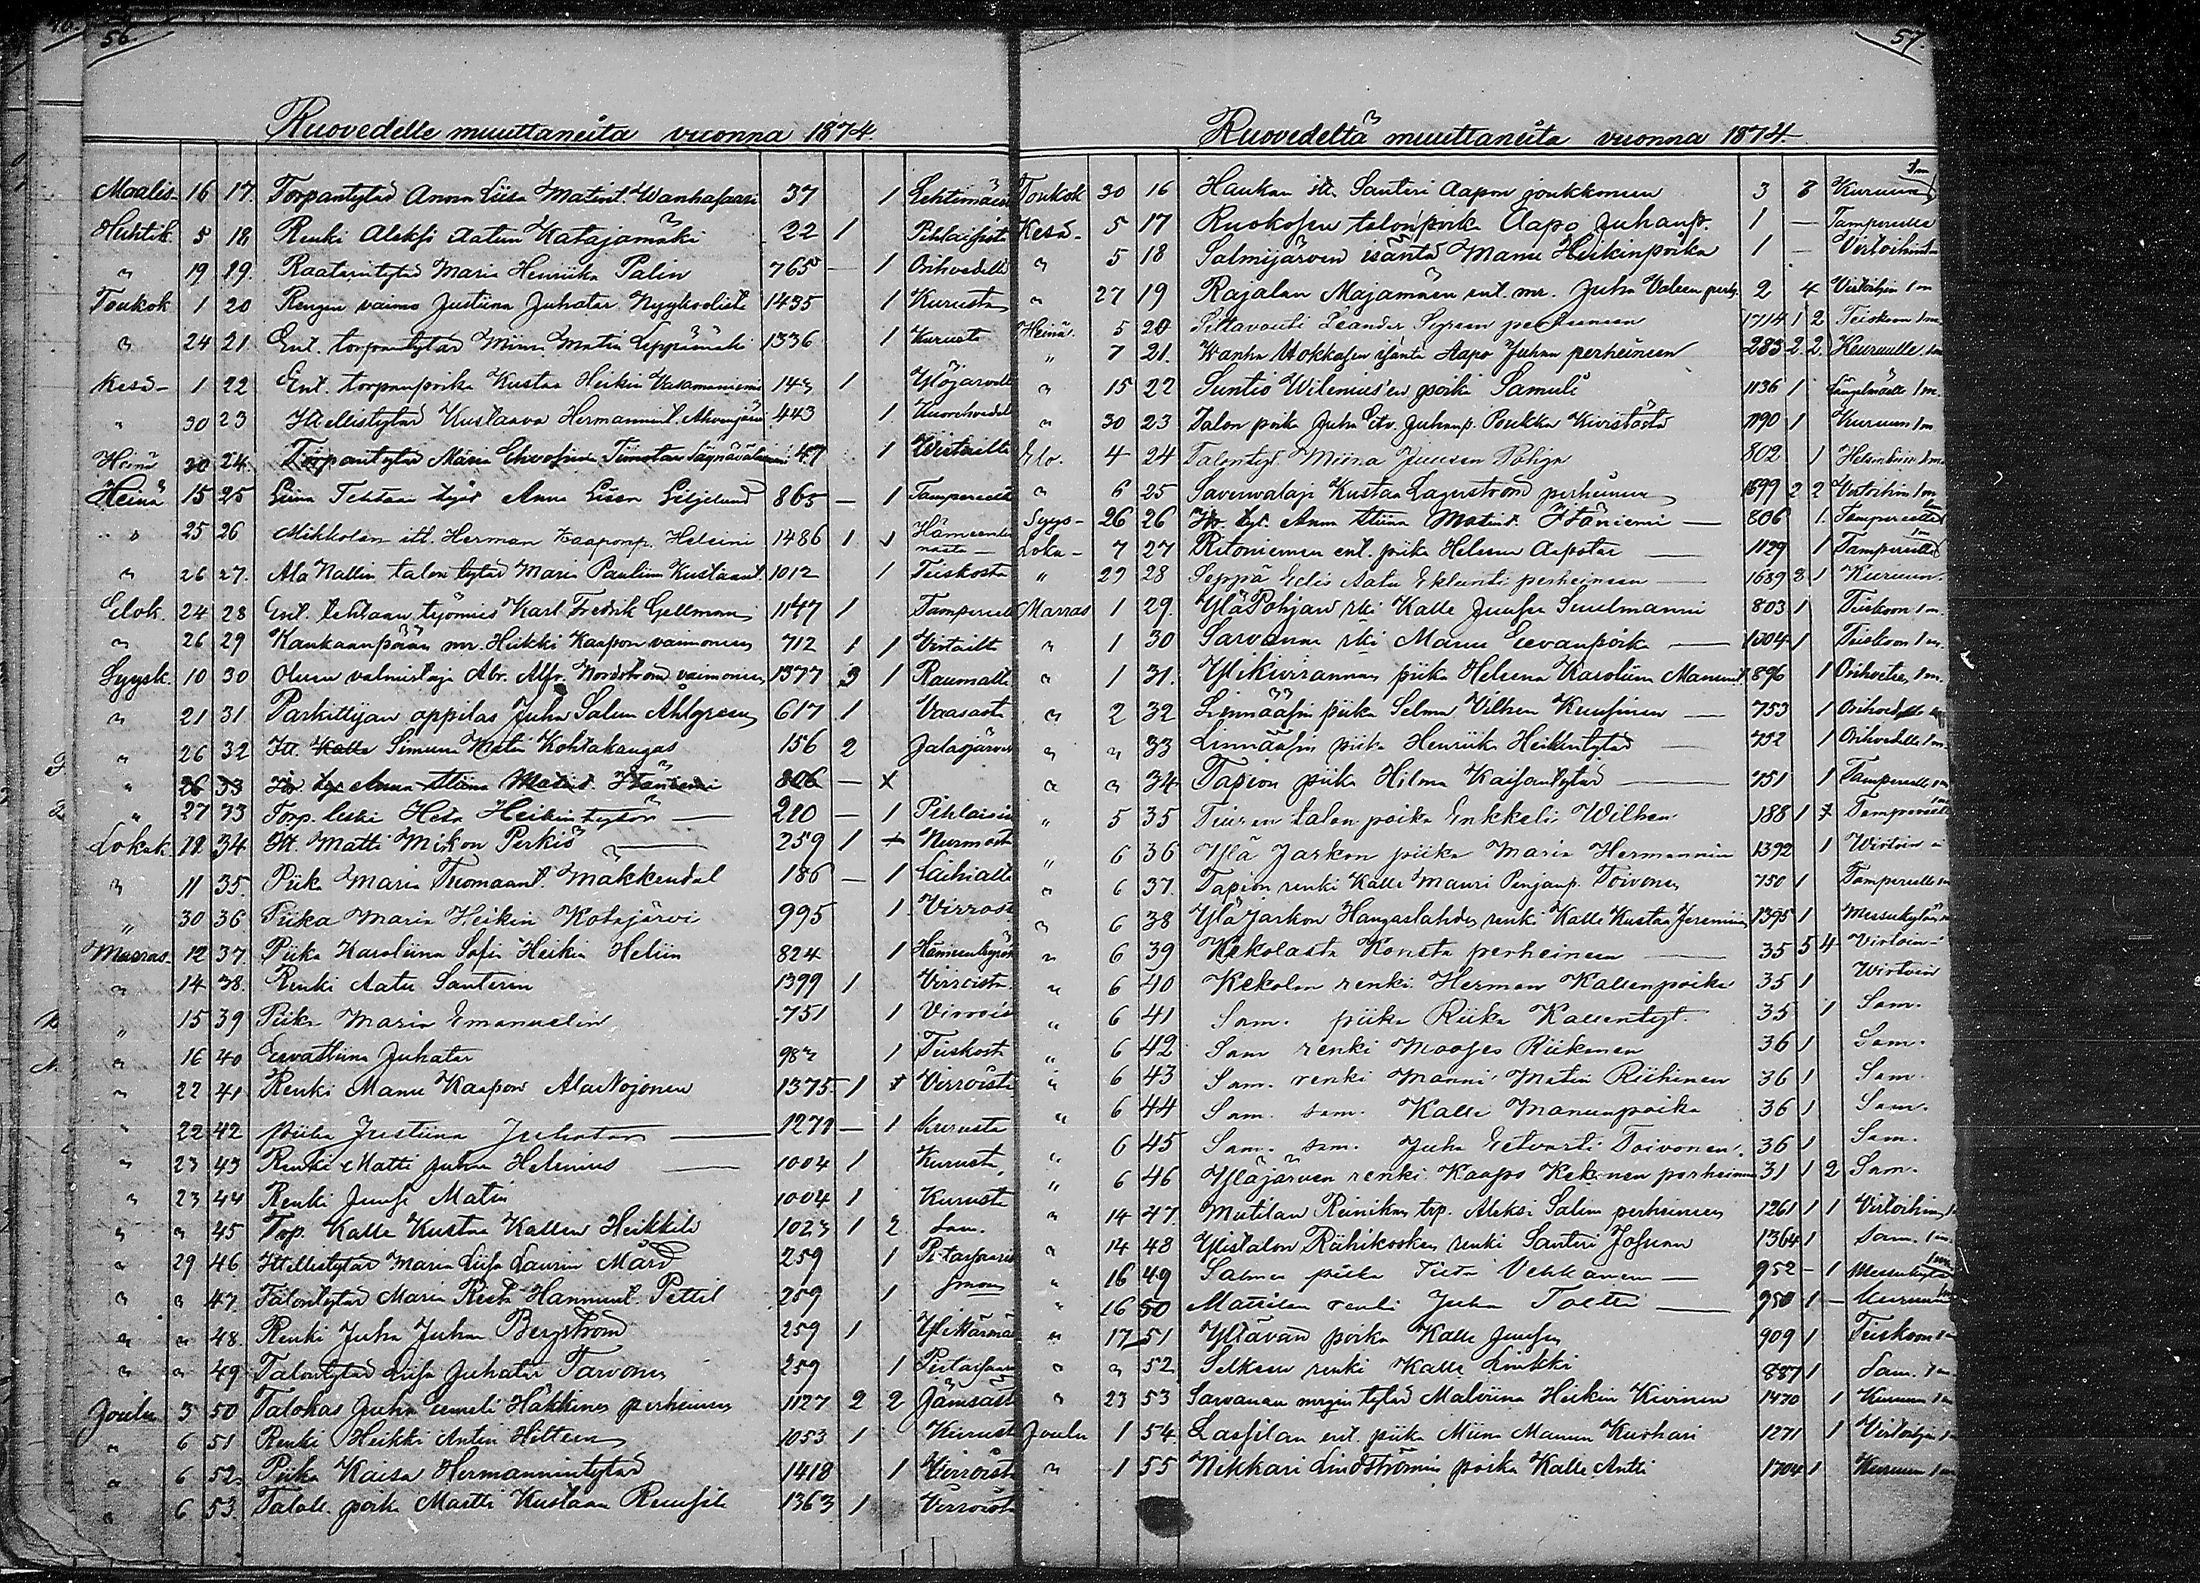 56
Ruovedelle muuttaneita vuonna 1874.
Maalis- 16 17. Torpantytär Anna Liisa Matint. Wanhasaari 37 1
Huhtik. 5 18 Renki Aleksi Aatun Katajamäki 22 1
" 19 19. Raatarintytär Maria Henriika Palin 765 — 1 Orihvedelle
Toukok 1 20 Rengin vaimo Justiina Juhatar 1435 1 Kurusta
" 24 21. Ent. torpantytär Miina Matin Leppämäki 1336 1 Kurusta
Kesä- 1 22 Ent. torpanpoika Kustaa Heikin 143 1 Ylöjärvelt
" 30 23 Itellistytär Kustaava Hermannint. 443 1.
Heinä 30 24 Torpantytär Maria Timotar 47 1 Virtailta
Heinä 15 25 tytär Anna Liisa Liljelund 865 — 1 Tampereelt
" 25 26 Mikkolan itl. Herman Kaaponp. Heleini 1486 1 1
" 26 27. Ala Nallin talon tytär Maria Pauliina Kustaant 1012 1 Teiskosta
Elok. 24 28 Ent. tehtaan työmies Karl Fredrik Gellman 1147 1 Tampereelt
" 26 29 Kaukaanpään mr. Heikki Kaapon vaimoneen 712 1 1 Virtailta
Syysk. 10 30 Oluen valmistaja Abr. Alfr. Nordström vaimoneen 1377 3 1 Raumalt
" 21 31. Parkittijan oppilas Juha Salem Åhlgreen 617 1 Vaasasta
" 26 32 Itl. Kalle Simuna Matin Kohtakangas 156 2 Jalasjärvelt
" 26 33 Itr. tyt Anna Stiina Matint. Itäniemi 806 — x
" 27 33 Torp. leski Heta Heikintytär — 210 — 1
Lokak. 12. 34 Itl. Matti Mikon Perkiö 259 1 + Nurmosta
" 11 35. Piika Maria Tuomaant. Mäkkendal 186 — 1 Laihialta
" 30 36 Piika Maria Heikin Kotajärvi 995 1. Virroist
Marras- 12 37. Piika Karoliina Sofia Heikin Heliin 824 1
" 14 38. Renki Aatu Santerin 1399 1 Virroista.
" 15 39 Piika Maria Emanuelin 751 1 Virrois
" 16 40 Eevastiina Juhatar 1 Teiskost
" 22 41 Renki Manu Kaapon AlaNojonen 1375 1 + Virroist
" 22 42 piika Justiina Juhatar — 1271 — 1 Kurusta
" 23 43 Renki Matti Juhan Helenius — 1004 1 Kurusta
" 23 44 Renki Juuse Matin 1004 1 Kurusta
" " 45 Trp. Kalle Kustaa Kallen Heikkilä 1023 1 2 sam.
" 29 46 Itellistytär Maria Liisa Laurin Mård 259 1
" " 47. Talontytär Maria Reeta Hannunt. Pettil 259 1
" " 48. Renki Juha Juhan Bergström 259 1
" " 49 Talontytär Liisa Juhatar Tarvonen 259 1
Joulu 3 50 Talokas Juha eemeli Häkkinen perheineen 1127 2 2 Jämsäst
" 6 51 Renki Heikki Antin Hiltunen 1053 1 Kurust
" 6 52. Piika Kaisa Hermannintytär 1418 1 Virroist
" 6 53. Talol. poika Martti Kustaan 1363 1 Virroist
57.
Ruovedeltä muuttaneita vuonna 1874.
Toukok 30 16 Haukan itl. Santeri Aapon joukkoneen 3 3 Kuruun 1m
Kesä- 5 17 Ruokosen talonpoika Aapo Juhanp. 1 — Tampereelle
" 5 18 Salmijärven isäntä Manu Heikinpoika 1 —
" 27 19 Rajalan Majamäen ent. mr. Juha perh. 2 4 Virtoihin 1m
Heinä. 5 20 Siltavouti Leander perheineen 1714 1 2 Teiskoon 1m.
" 7 21. Wanha Mokkasen isäntä Aapo Juhan perheineen 283 2. 2. Keuruulle, 1m
" 15 22 Suntio Wilenius'en poika Samuli 1136 1 Längelmäelle 1m.
" 30 23 Talon poika Juha Etv. Juhanp. Poukka Kivistöstä 1190 1 Kuruun 1m
Elo. 4 24 Talontyt. Miina Juusen Pohja 802 1 Helsinkiin 1m.
" 6 25 Savenvalaja Kustaa Lagerström perheineen 1699 2 2 Virtoihin 1m
Syys- 26 26 Itr. tyt. Anna Stiina Matint. Itäniemi — 806 1. Tampereelle 1m
Loka- 7 27 Ritoniemen ent. piika Helena Aapotar — 1129 1 Tampereelle 1m
" 29 28 Seppä Eelis Aatu Eklunti perheineen — 1689 3 1 Kuruun.
Marras 1 29. YläPohjan rki Kalle Juusen Suulmanni 803 1 Teiskoon 1m.
" 1 30 Sarvanne rki Manu Eevanpoika — 1004 1 Teiskoon 1m.
" 1 31. piika Helena Karoliina Manunt 896 1 Orihvetee 1m.
" 2 32 Linnääsin piika Selma Vilhen Kuusinen — 753 1 Orihvedelle
" " 33 Linnääsin piika Henriika Heikkintytär — 752 1 Orihvedelle 1m.
" " 34. Tapion piika Hilma Kaisantytär — 751 1 Tampereelle 1m
" 5 35 talon poika Enkkeli Wilhen 188 1 Tampereelle
" 6 36 Ylä Jarkon piika Maria Hermannin 1392 1
" 6 37. Tapion renki Kalle Mauri Penjanp. Toivonen 750 1 Tampereelle 1m
" 6 38 YläJarkon Hangaslahden renki Kalle Kustaa Jeremiin 1395 1
" 6 39 Kekolasta Konsta perheineen — 35 5 4
" 6 40 Kekolan renki Herman Kallenpoika 35 1
" 6 41 Sam. piika Riika Kallentyt. 35 1 Sam.
" 6 42 Sam renki Mooses Riikonen 36 1 Sam.
" 6 43 Sam. renki Manni Matin Riihinen 36 1 Sam.
" 6 44 Sam. sam. Kalle Manunpoika 36 1 Sam.
" 6 45 Sam. sam. Juha Eetvarti Toivonen. 36 1 Sam.
" 6 46 Yläjärven renki Kaapo Kekonen perheineen 31 1 2 Sam.
" 14 47. Mutilan Reinikan trp. Aleksi Salin perheineen 1261 1 1 Virtoihin 1
" 14 48 Ylistalon Riihikosken renki Santeri Josuan 1364 1 sam. 1m.
" 16 49 Salmen piika Vehkanen — 952 — 1 Messukylää 1m
" 16 50 Mattilan renki Juha — 950 1 — Kuruun 1m
" 17 51 Yltävän poika Kalle Juusen 909 1 Teiskoon 1m
" " 52 Selkeen renki Kalle Linkki 887 1 Sam. 1m
" 23 53 Sarvanan mrgin tytär Malviina Heikin Kivinen 1470 1 Kuruun 1m
Joulu 1 54. Lassilan ent. piika Miina Manun Kuohari 1271 1
" 1 55 Nikkari Lindströmin poika Kalle Antti 1704 1 Kuruun 1m